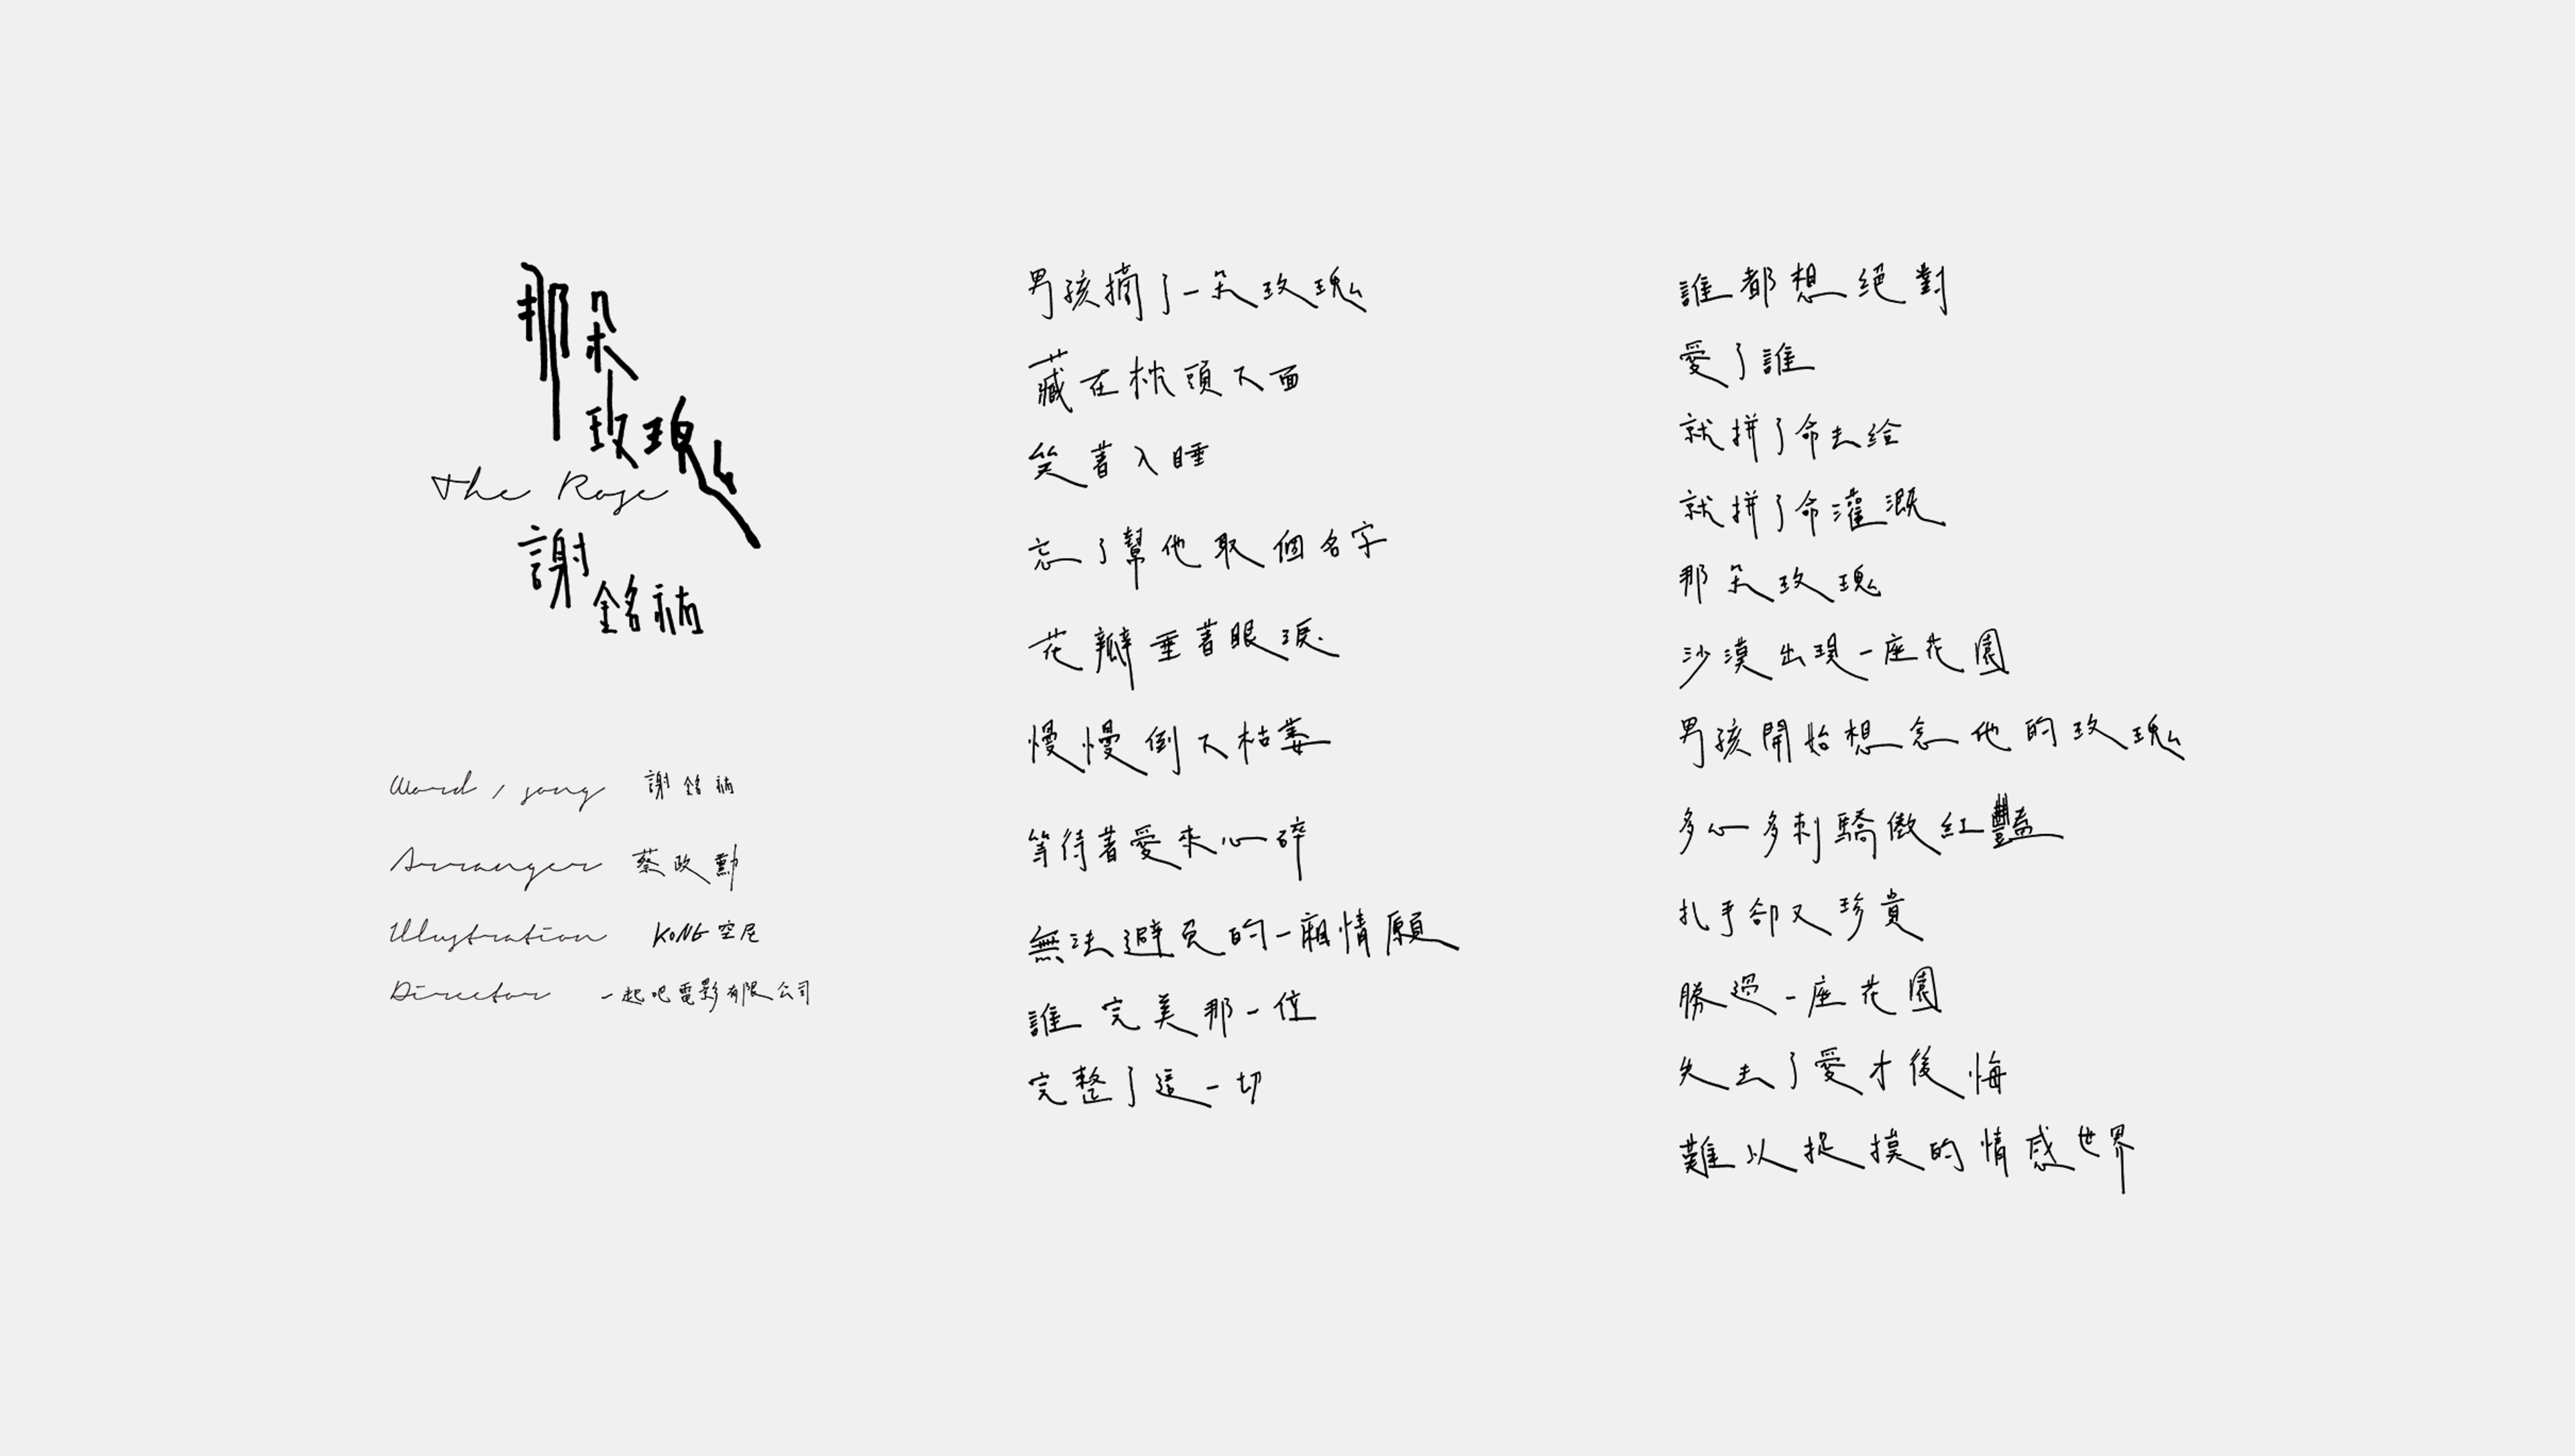 那朵
玫瑰
The Rose
謝
銘祐
Word / song 謝銘祐
Arranger 蔡政勳
Illustration KONG空尼
Director 一起吧電影有限公司
男孩摘了一朵玫瑰
藏在枕頭下面
笑著入睡
忘了幫他取個名字
花瓣垂著眼淚
慢慢倒下枯萎
等待著愛來心碎
無法避免的一廂情願
誰完美那一位
完整了這一切
誰都想絕對
愛了誰
就拼了命去給
就拼了命灌溉
那朵玫瑰
沙漠出現一座花園
男孩開始想念他的玫瑰
多心多刺驕傲紅豔
扎手卻又珍貴
勝過一座花園
失去了愛才後悔
難以捉摸的情感世界